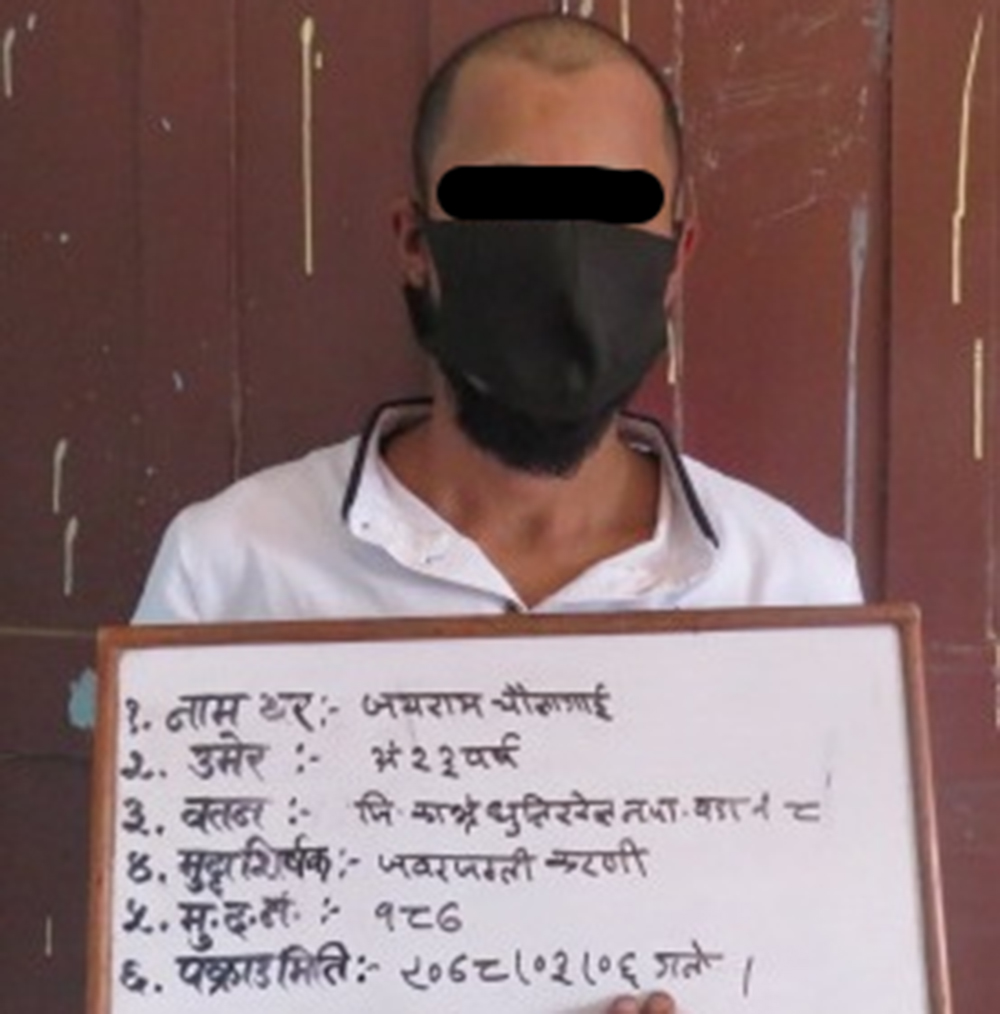 १. नाम थर :- जयराम चौलागाई
२. उमेर :- अं २३ वर्ष
३. वतन :- जि. काभ्रे धुलिखेल नपा. वडा नं ८
४. मुद्दा शिर्षक :- जवरजस्ती करणी
५. मु.द.नं. :- १८७
६. पक्राउ मिति :- २०७८।०३।०६ गते ।